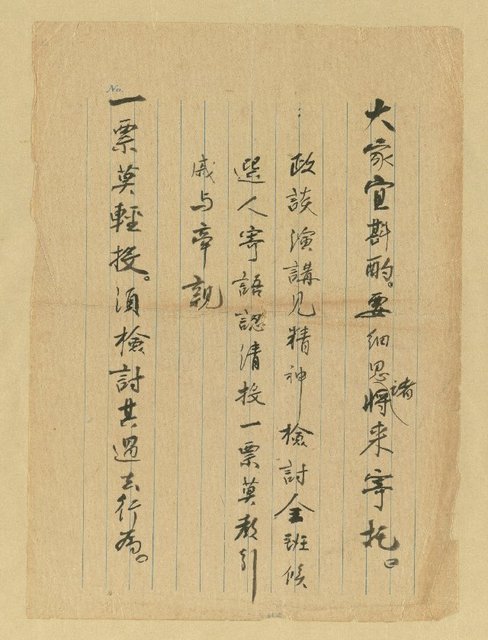 No.
大家宜斟酌。要細思諸將来寄托。
政談演講見精神檢討全班候
選人寄語認清投一票莫教引
戚与牽親
一票莫輕投。須檢討其過去行為。